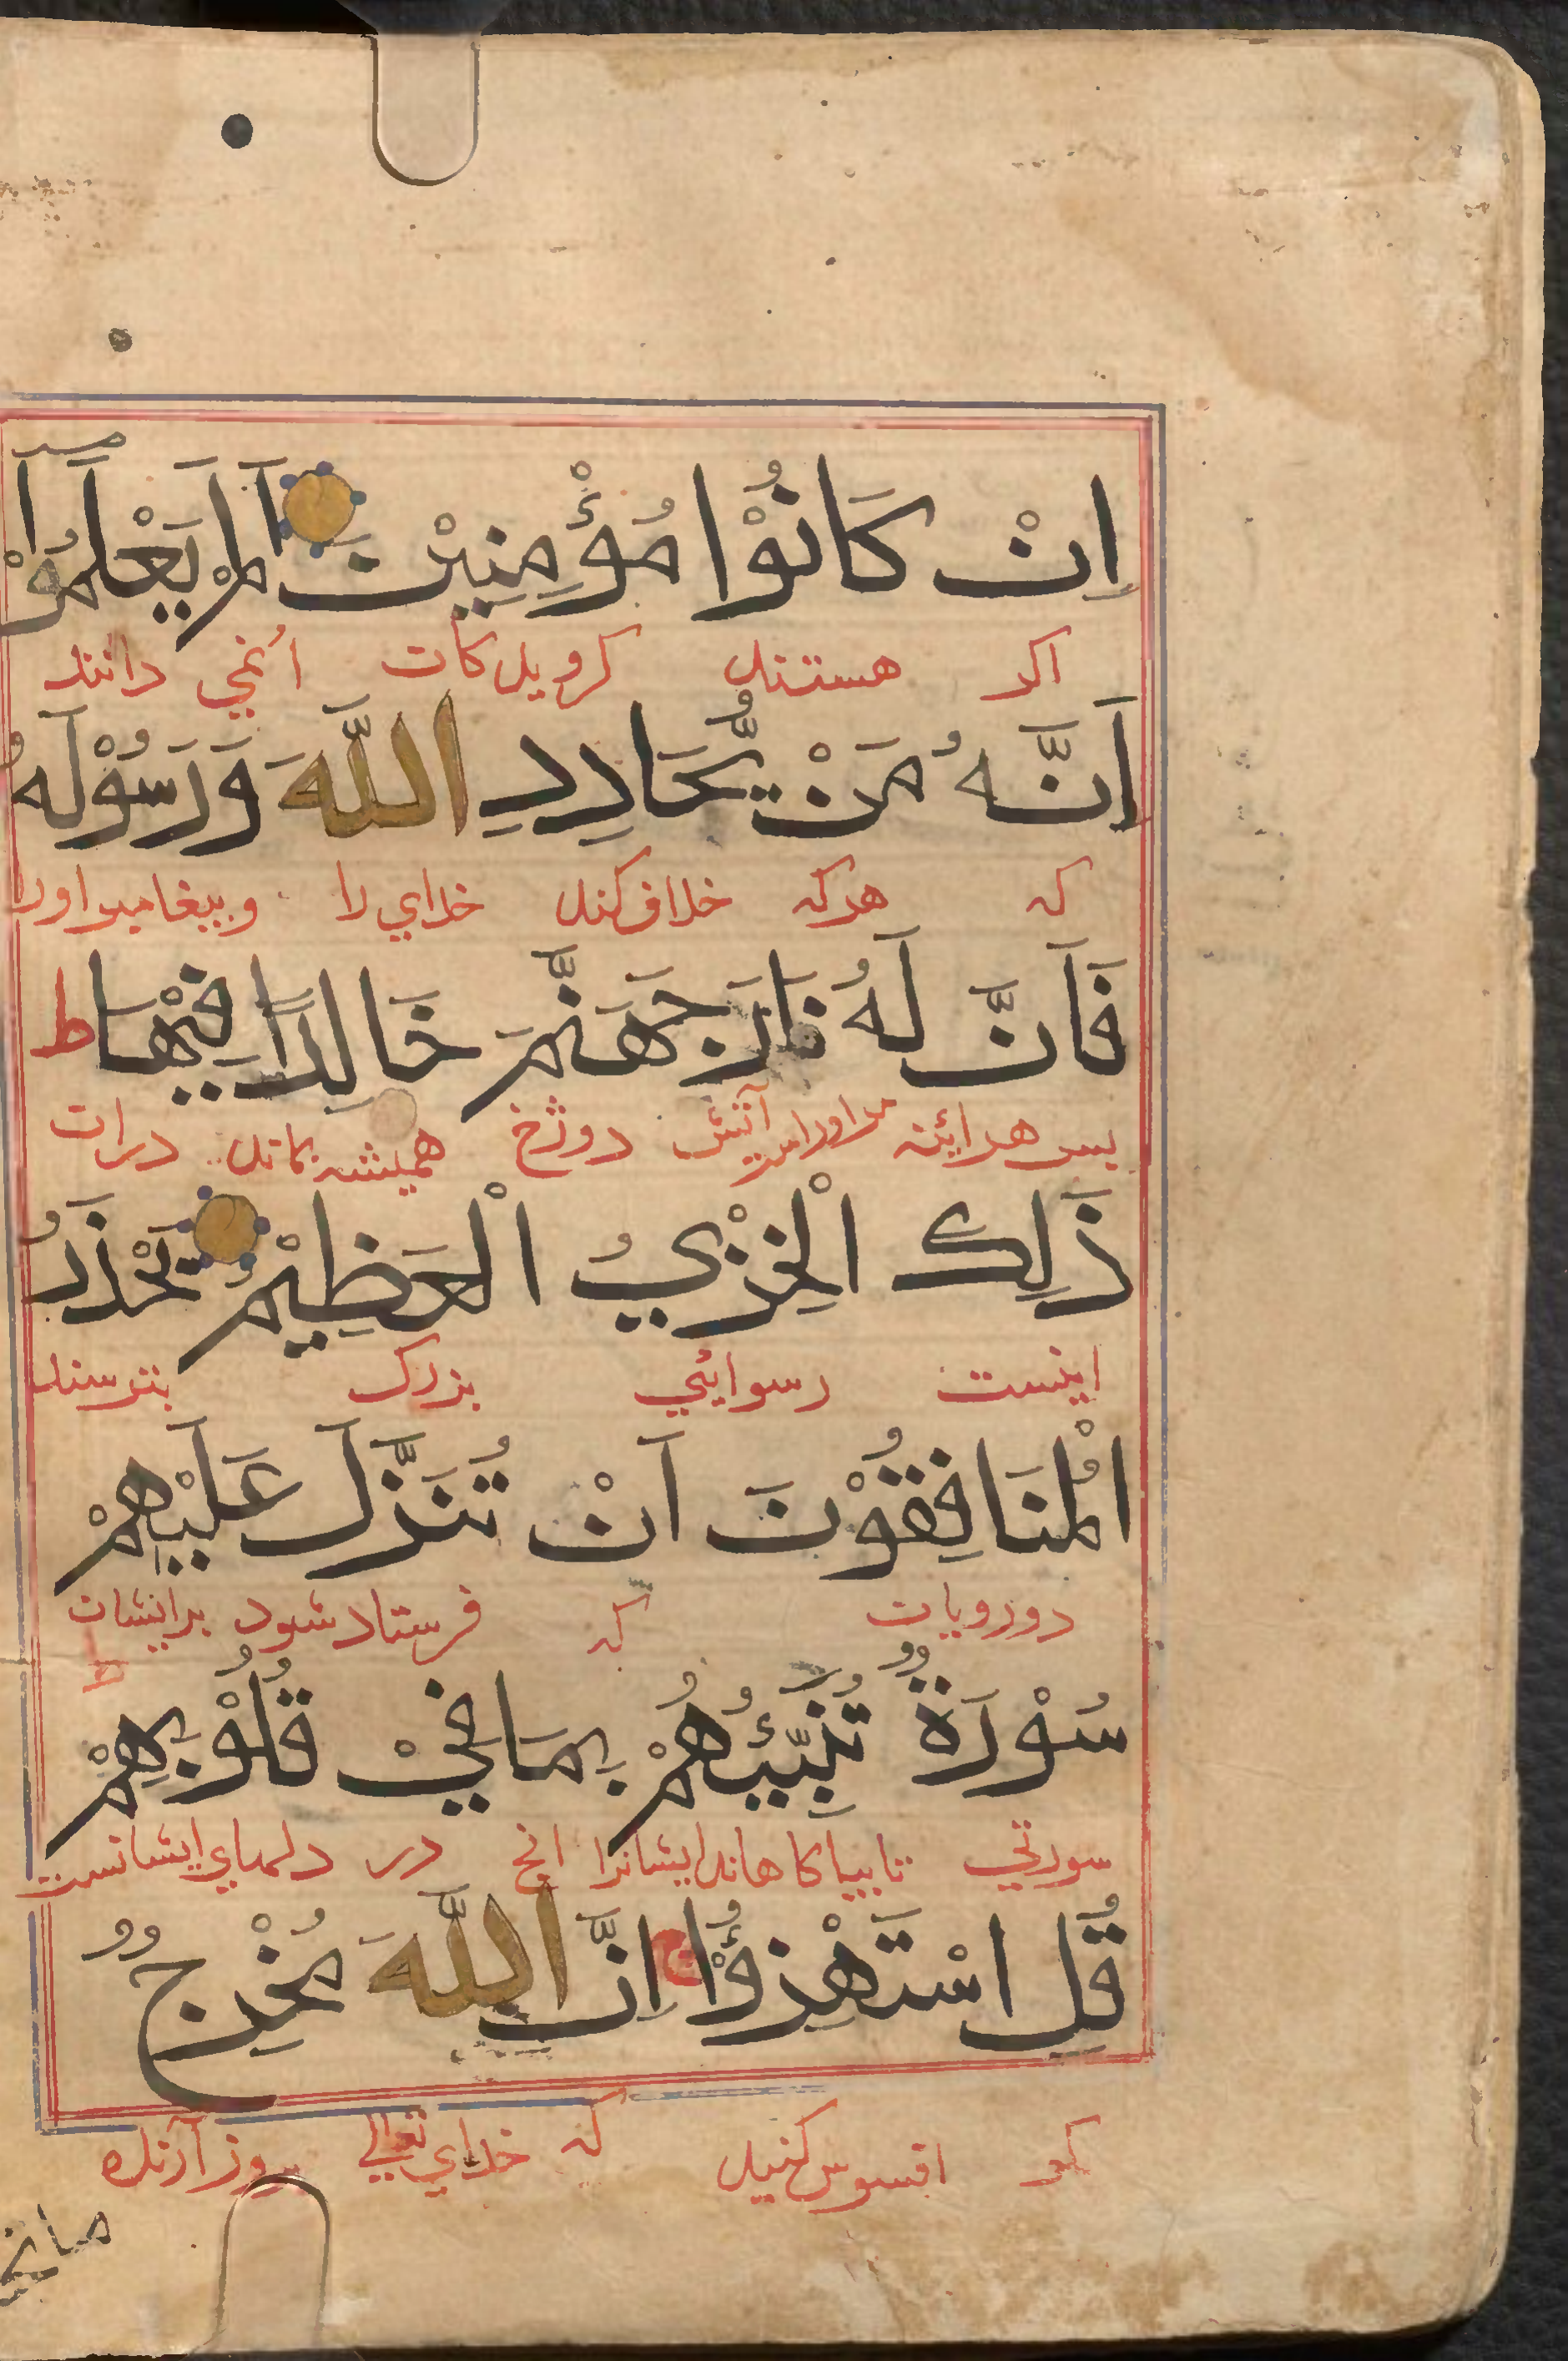 اِنْ كَانُوْا مُؤْمِنِيْنَ اَلَمْ يَعْلَمُوْا
اكر هستند كرويدكان انمي دانند
اَنَّهُ مَنْ يُّحَادِدِ اللّٰهَ وَرَسُوْلَهُ
كه هركه خلاف كند خداي را وبيغامبر اورا
فَاَنَّ لَهُ نَارَ جَهَنَّمَ خَالِدًا فِيْهَا ط
بس هرائنه مر اوراست آتش دوزخ هميشه بماند دران
ذَلِكَ الْخِزْيُ الْعَظِيْمُ يَحْذَرُ
اينست رسوائي بزرك بترسند
الْمُنَافِقُوْنَ اَنْ تُنَزَّلَ عَلَيْهِمْ
دورويان كه فرستاد شود برايشان
سُوْرَةٌ تُنَبِّئُهُمْ بِمَا فِيْ قُلُوْبِهِمْ ط
سورتي تا بياكاهاند ايشانرا انج در دلهاي ايشانست
قُلِ اسْتَهْزِؤُا ج اِنَّ اللّٰهَ مُخْرِجٌ
كو افسوس كنيد كه خداي تعالي بيرون آرنده
مانح